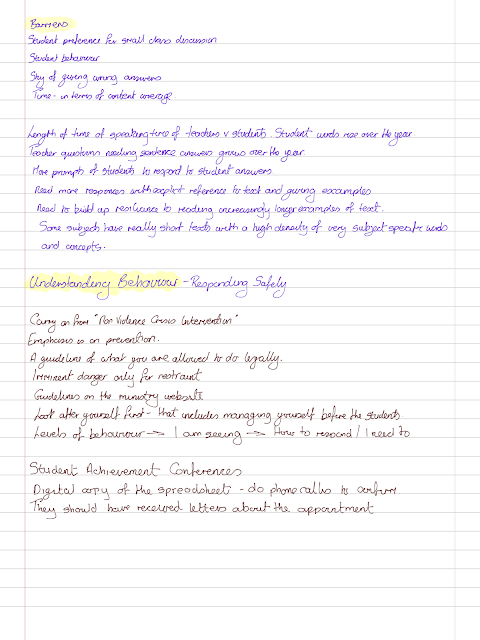 Barriers
Student preference for small class discussion
Student behaviour
Shy of giving wrong answers
Time - in terms of content coverage.
Length of time of speaking time of teachers v students. Student words rise over the year
Teacher questions needing sentence answers grows over the year.
More prompts of students to respond to student answers
Need more responses with explicit reference to text and giving examples.
Need to build up resilience to reading increasingly longer examples of text.
Some subjects have really short texts with a high density of very subject specific words
and concepts.
Understanding Behaviour - Responding Safely
Carry on from "Non Violence Crisis Intervention"
Emphasis is on prevention.
A guideline of what you are allowed to do legally.
Imminent danger only for restraint
Guidelines on the ministry website
Look after yourself first - that includes managing yourself before the students
Levels of behaviour → I am seeing → How to respond / I need to
Student Achievement Conferences
Digital copy of the spreadsheet - do phone calls to confirm
They should have received letters about the appointment